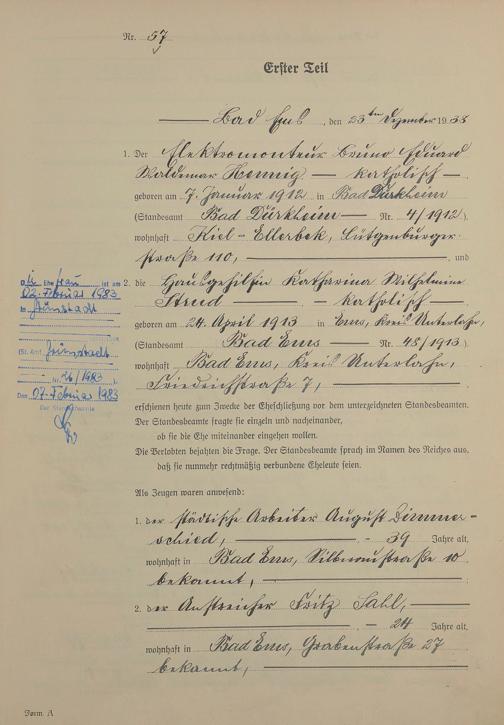 Nr. 57
Erster Teil
Bad Ems, den 23ten Dezember 1938
1. Der Elektromonteur Bruno Eduard
Waldemar Hennig — katholisch —
geboren am 7. Januar 1912 in Bad Dürkheim
(Standesamt Bad Dürkheim — Nr. 4/1912)
wohnhaft Kiel-Ellerbek, Lütgenburger-
straße 110, — und
2. die Hausgehilfin Katharina Wilhelmine
— katholisch —
geboren am 24. April 1913 in Ems, Kreis Unterlahn,
(Standesamt Bad Ems — Nr. 48/1913)
wohnhaft Bad Ems, Kreis Unterlahn,
Friedrichstraße 7, —
erschienen heute zum Zwecke der Eheschließung vor dem unterzeichneten Standesbeamten.
Der Standesbeamte fragte sie einzeln und nacheinander,
ob sie die Ehe miteinander eingehen wollen.
Die Verlobten bejahten die Frage. Der Standesbeamte sprach im Namen des Reiches aus,
daß sie nunmehr rechtmäßig verbundene Eheleute seien.
Als Zeugen waren anwesend:
1. der städtische Arbeiter August Zimmer-
schied, — 39 Jahre alt,
wohnhaft in Bad Ems, Silbnaustraße 10
bekannt, —
2. der Anstreicher Fritz Sahl, —
— 24 Jahre alt,
wohnhaft in Bad Ems, Grabenstraße 27
bekannt, —
Die Ehefrau ist am
02. Februar 1983
in Grünstadt
(St. Amt Grünstadt
Nr. 26/1983).
Den 07. Februar 1983
Der Standesbeamte
Form. A